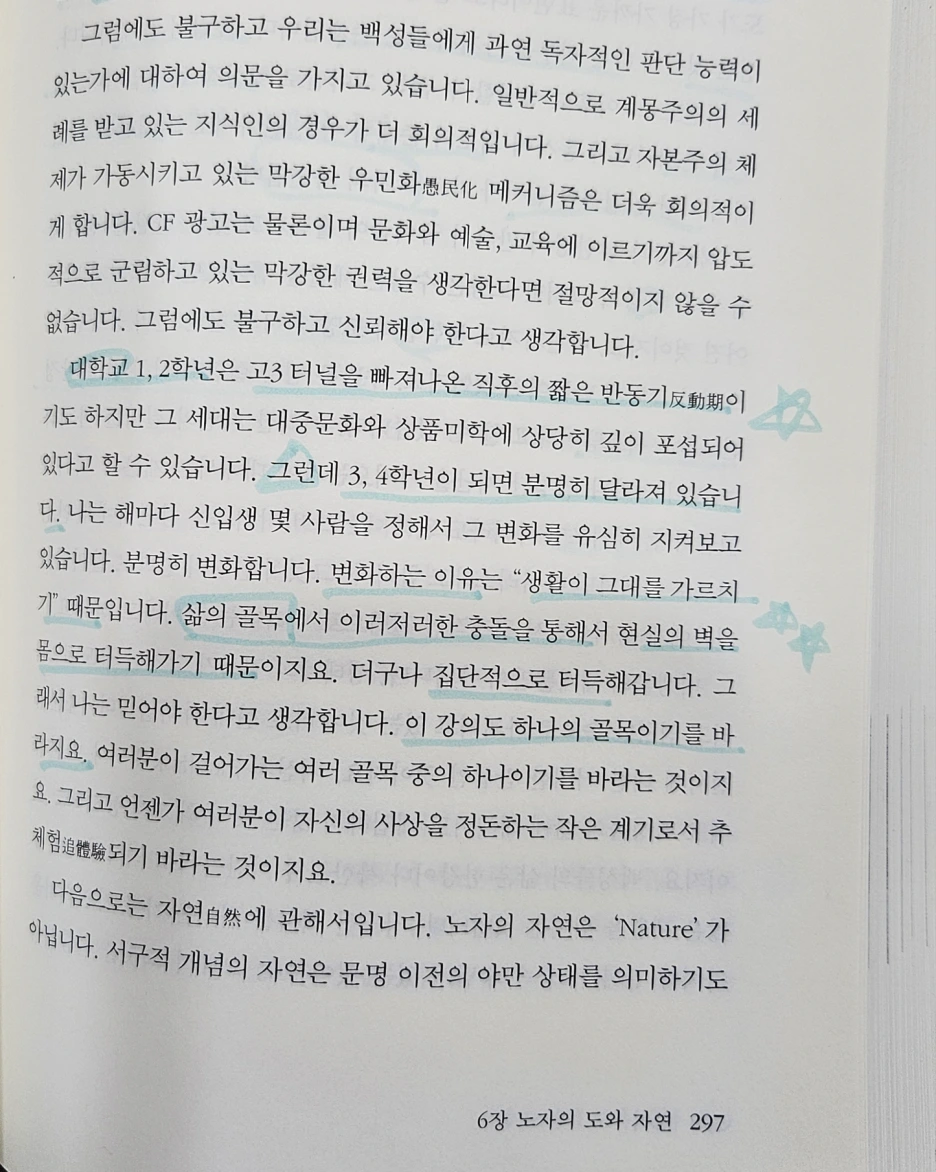 그럼에도 불구하고 우리는 백성들에게 과연 독자적인 판단 능력이
있는가에 대하여 의문을 가지고 있습니다. 일반적으로 계몽주의의 세
례를 받고 있는 지식인의 경우가 더 회의적입니다. 그리고 자본주의 체
제가 가동시키고 있는 막강한 우민화愚民化 메커니즘은 더욱 회의적이
게 합니다. CF 광고는 물론이며 문화와 예술, 교육에 이르기까지 압도
적으로 군림하고 있는 막강한 권력을 생각한다면 절망적이지 않을 수
없습니다. 그럼에도 불구하고 신뢰해야 한다고 생각합니다.
대학교 1, 2학년은 고3 터널을 빠져나온 직후의 짧은 반동기反動期이
기도 하지만 그 세대는 대중문화와 상품미학에 상당히 깊이 포섭되어
있다고 할 수 있습니다. 그런데 3, 4학년이 되면 분명히 달라져 있습니
다. 나는 해마다 신입생 몇 사람을 정해서 그 변화를 유심히 지켜보고
있습니다. 분명히 변화합니다. 변화하는 이유는 “생활이 그대를 가르치
기” 때문입니다. 삶의 골목에서 이러저러한 충돌을 통해서 현실의 벽을
몸으로 터득해가기 때문이지요. 더구나 집단적으로 터득해갑니다. 그
래서 나는 믿어야 한다고 생각합니다. 이 강의도 하나의 골목이기를 바
라지요. 여러분이 걸어가는 여러 골목 중의 하나이기를 바라는 것이지
요. 그리고 언젠가 여러분이 자신의 사상을 정돈하는 작은 계기로서 추
체험追體驗되기 바라는 것이지요.
다음으로는 자연自然에 관해서입니다. 노자의 자연은 ‘Nature’가
아닙니다. 서구적 개념의 자연은 문명 이전의 야만 상태를 의미하기도
6장 노자의 도와 자연 297